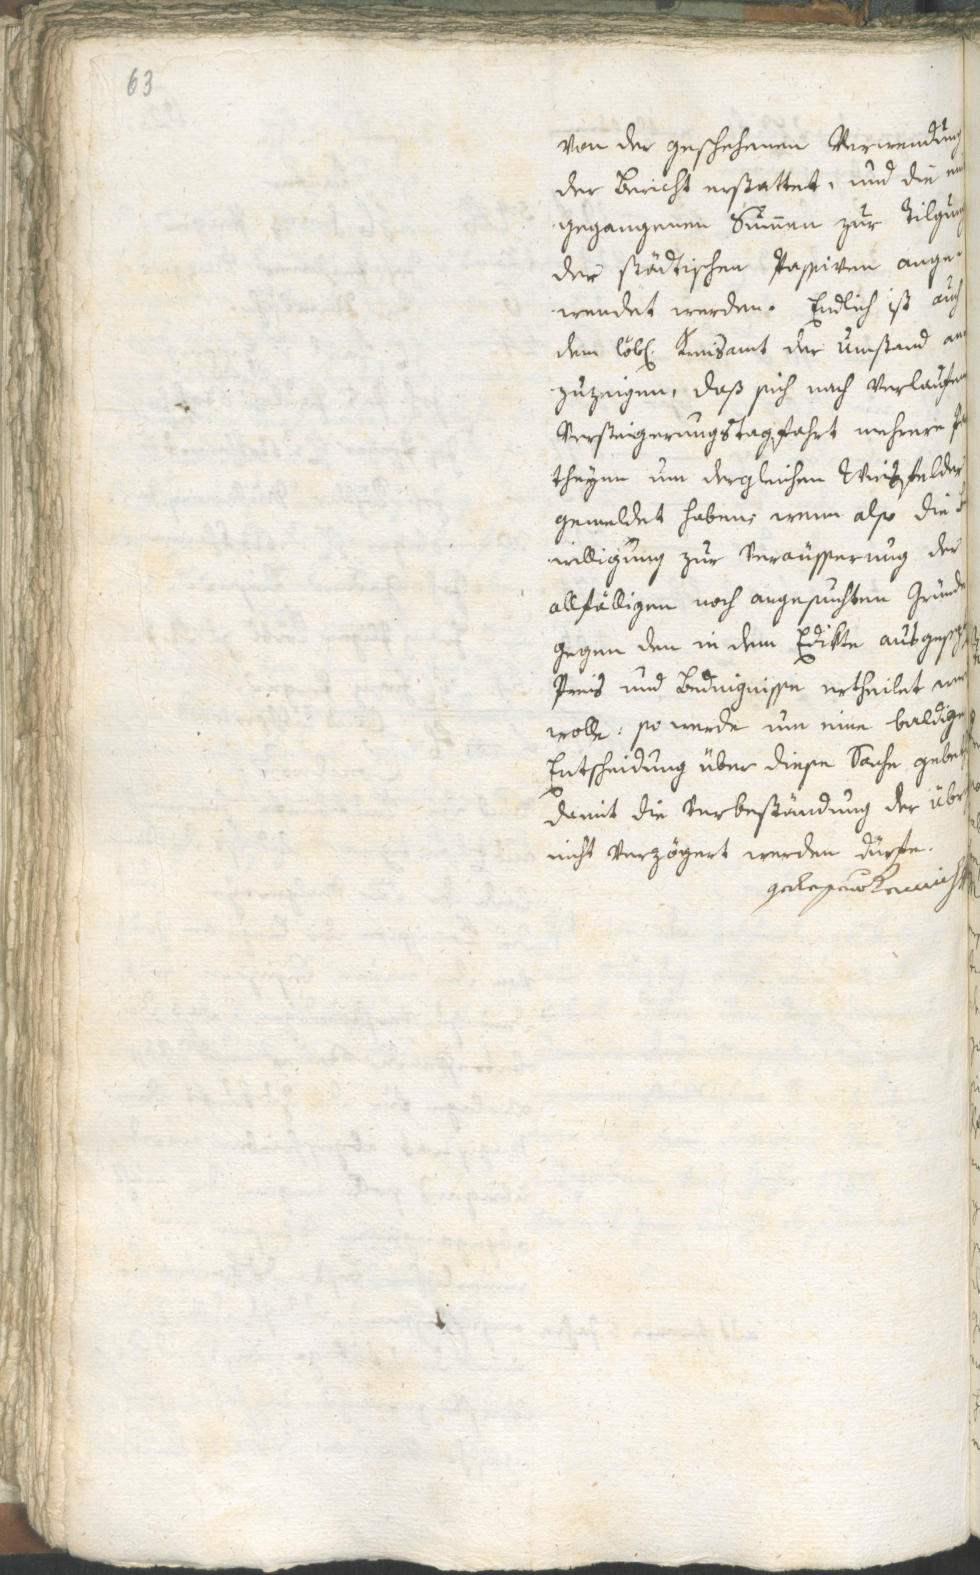 63
von der geschehenen Verwendung
der Bericht erstattet, und die ein
gegangenen Summen zur Tilgung
der städtischen Passiven ange-
wendet werden. Endlich ist auch
dem löbl. Kreisamt der Umstand an
zuzeigen, daß sich nach verlaufen
Versteigerungstagfahrt mehrere Par
theyen um dergleichen
gemeldet haben; wenn also die Be
willigung zur Veräusserung der
allfälligen noch angesuchten Gründe
gegen den in dem Edikte ausgese
Preis und Bedingnisse ertheilet wer
wolle: so werde um eine baldige
Entscheidung über diese Sache gebet
damit die Verbeständung der übr
nicht verzögert werden dürfe.